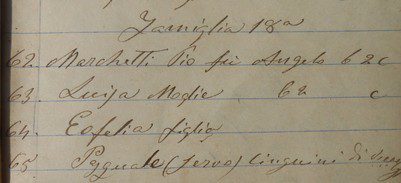 Famiglia 18a
62. Marchetti Pio fu Angelo 62 c
63. Luisa Moglie 62 c
64. Eofelia figlia
65 Pasquale (servo) Linguini di